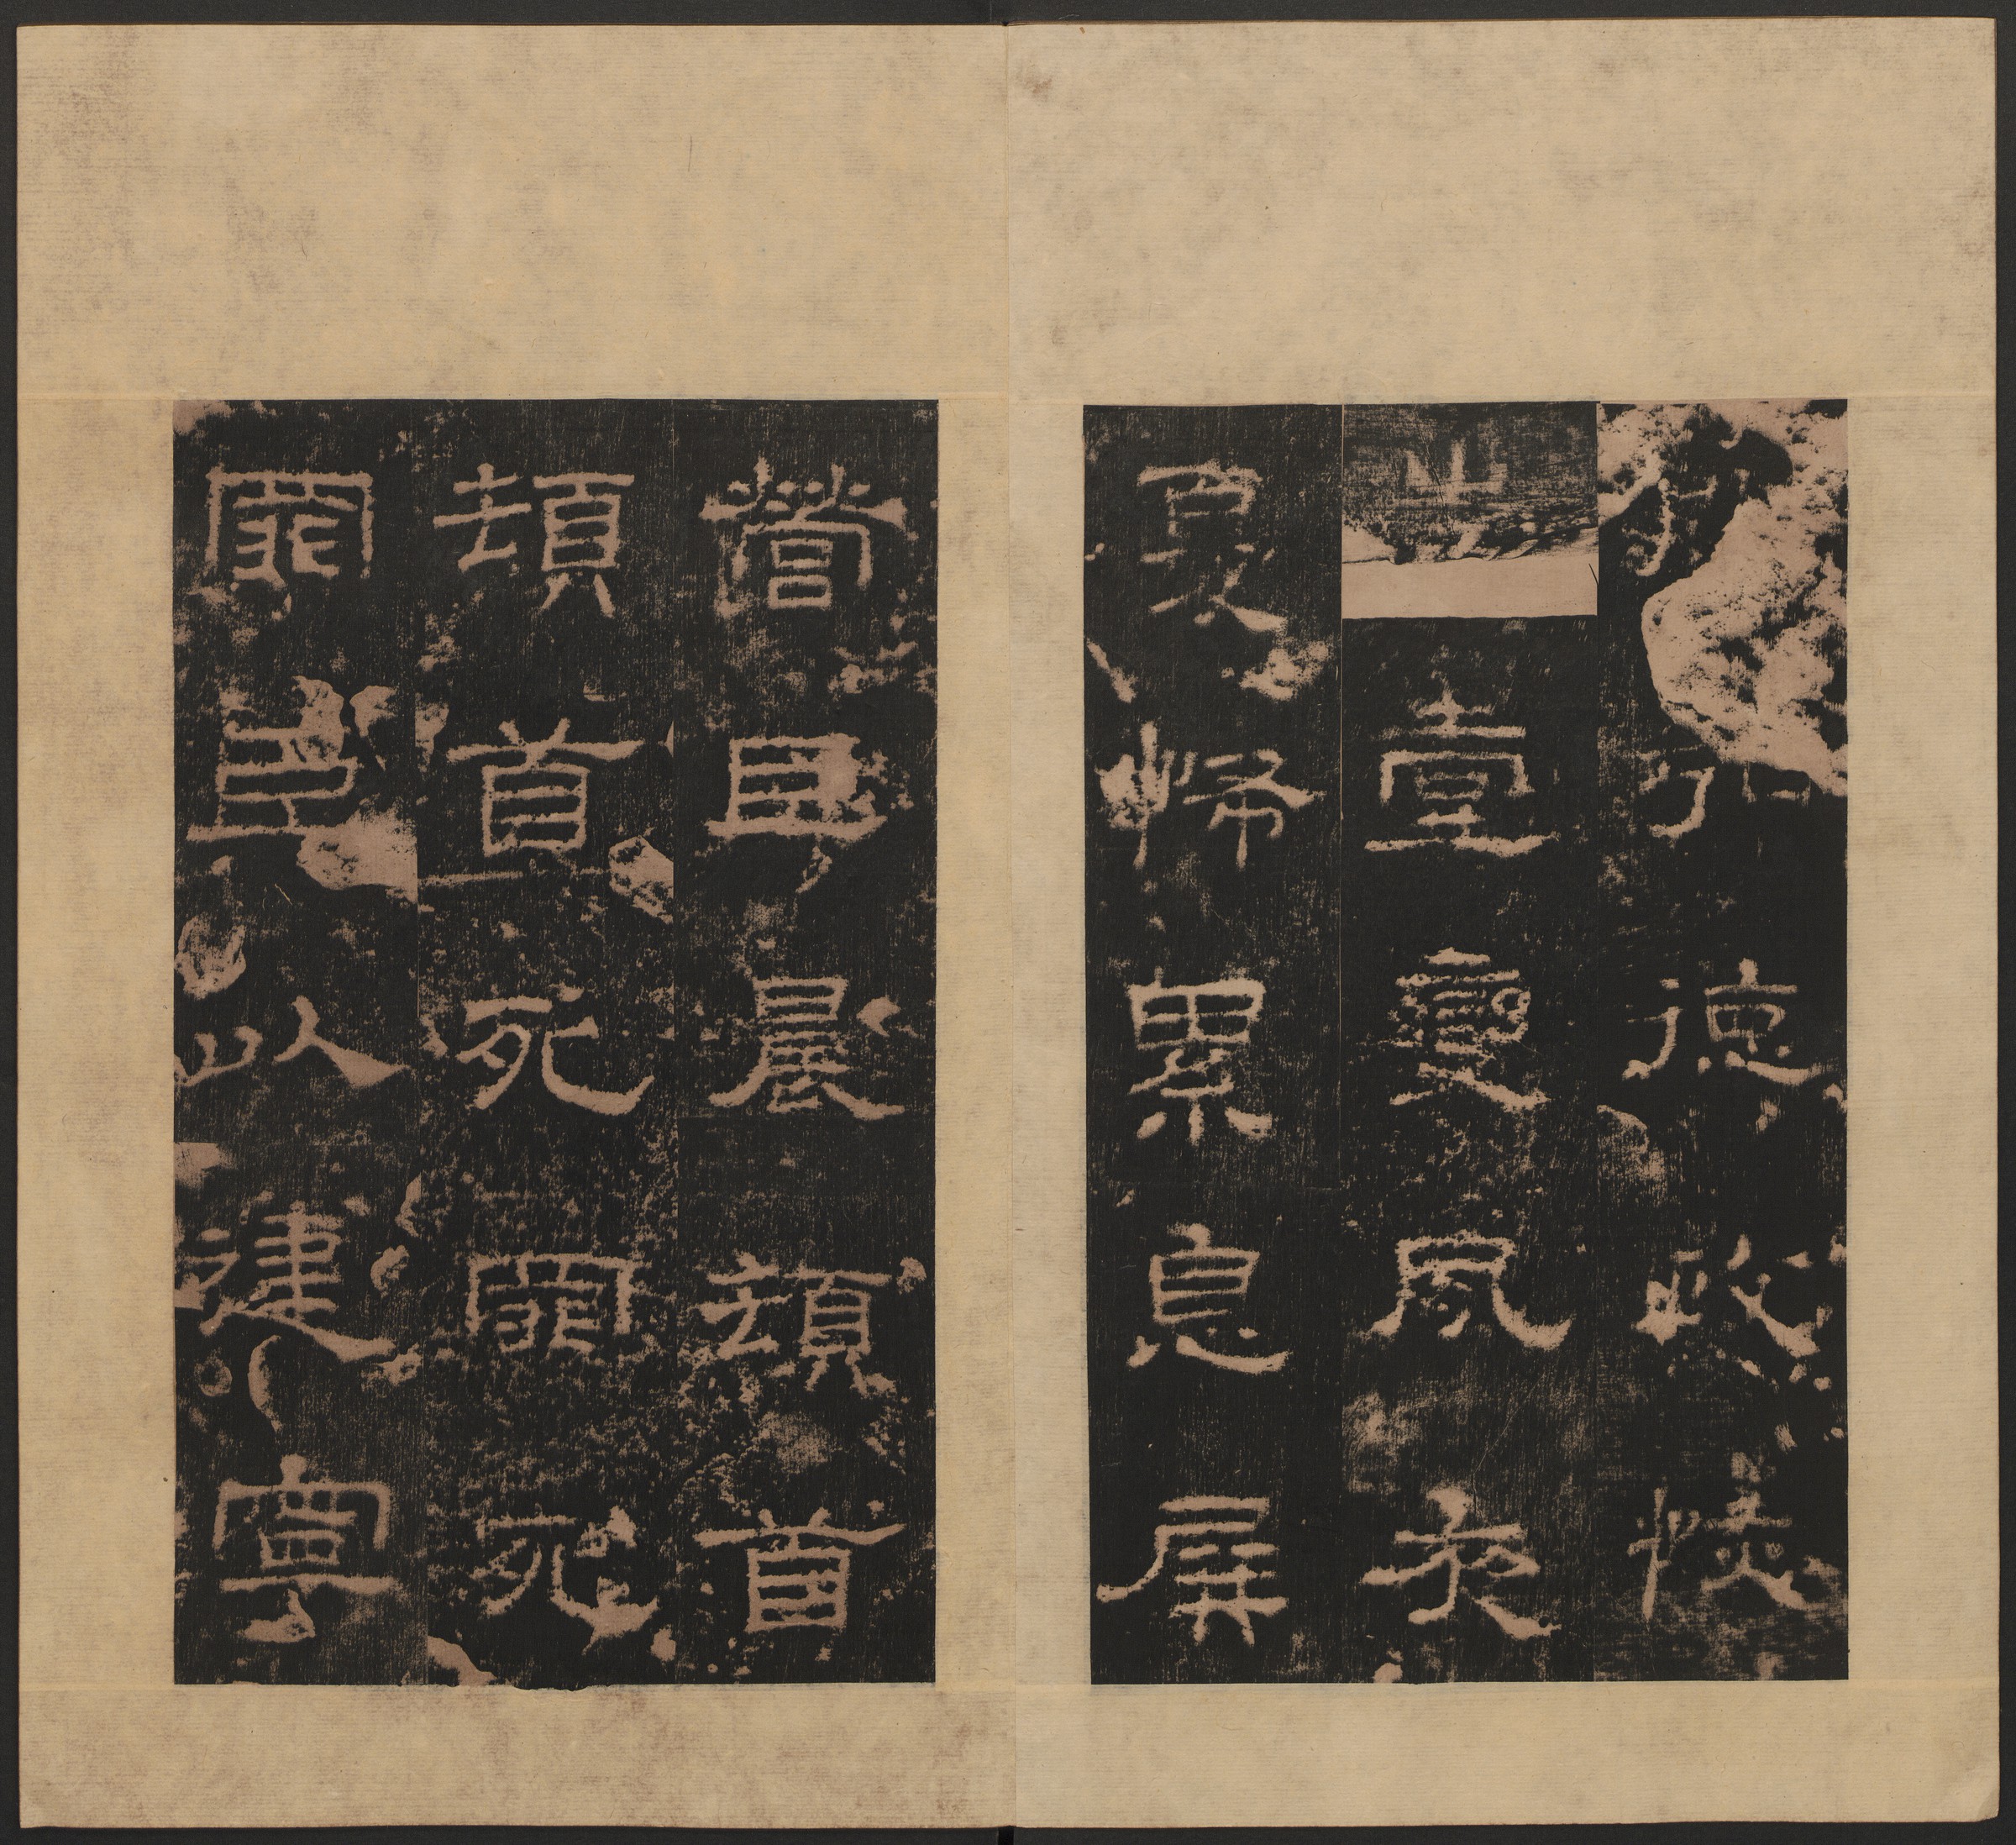 弘德政恢
壹變夙夜
憂怖累息屏
營臣晨頓首
頓首死罪死
罪臣以建寧